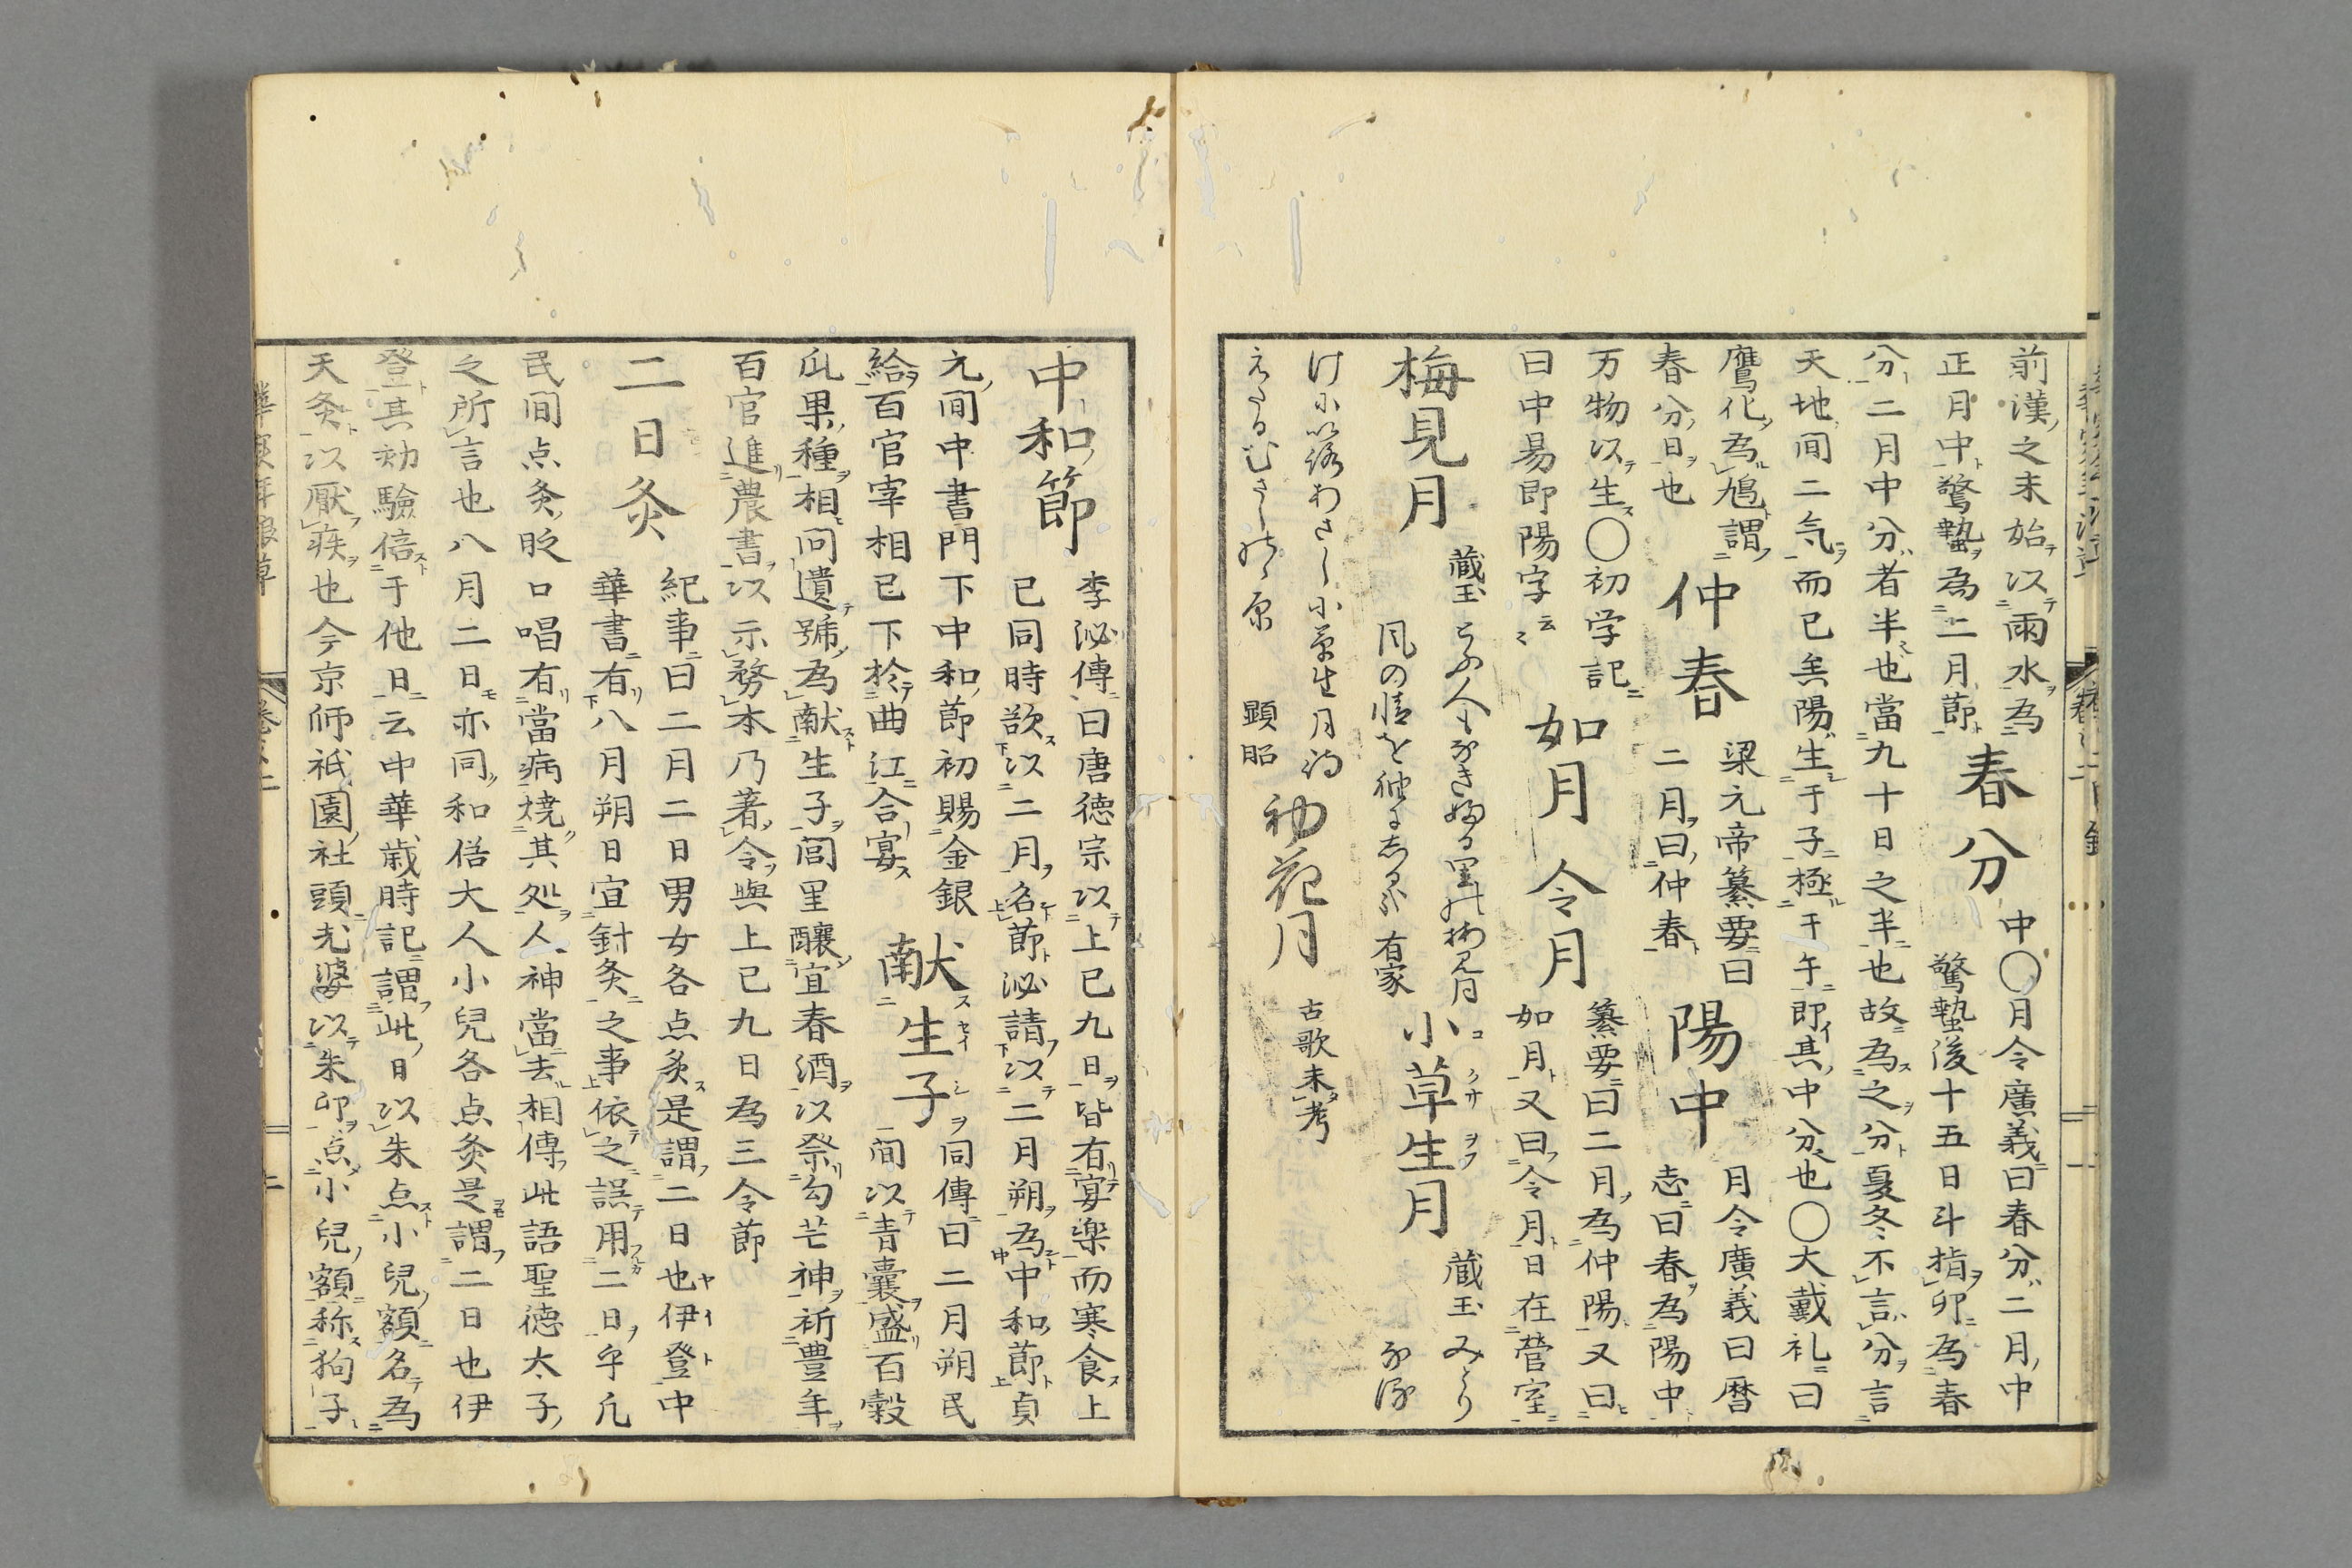 前漢之末始以雨水為
正月中驚蟄為二月節
春分
中〇月令廣義曰春分二月中
驚蟄後十五日斗指卯為春
分二月中分者半也當九十日之半也故為之分夏冬不言分言
天地間二気而已矣陽生于子極于午即其中分也〇大戴礼曰
鷹化為鳩謂
春分日也
仲春
梁元帝纂要曰
二月曰仲春
陽中
月令廣義曰暦
志曰春為陽中
万物以生〇初学記
曰中昜即陽字云々
如月
令月
纂要曰二月為仲陽又曰
如月又曰令月日在營室
梅見月
蔵玉
風の情を袖にしるらん 有家
小草生月
コクサヲフ
蔵玉 みとり
顕昭
初花月
古歌未考
中和節
李泌傳曰唐徳宗以上巳九日皆有宴楽而寒食上
巳同時欲以二月名節泌請以二月朔為中和節貞
元間中書門下中和節初賜金銀
給百官宰相已下於曲江合宴
献生子
スヤイシヲ
同傳曰二月朔民
間以青嚢盛百穀
瓜果種相問遺號為献生子閭里釀宜春酒以祭勾芒神祈豊年
百官進農書以示務本乃著令與上巳九日為三令節
二日灸
紀事曰二月二日男女各点灸是謂二日也伊登中
ヤイト
華書有八月朔日宜針灸之事依之誤用二日乎凡
民間点灸貶口唱有當病焼其処人神當去相傳此語聖徳太子
之所言也八月二日亦同和俗大人小兒各点灸是謂二日也伊
登其効驗倍于他日云中華歳時記謂此日以朱点小兒額名為
天灸以厭疾也今京師祇園社頭老婆以朱印点小兒額称狗子